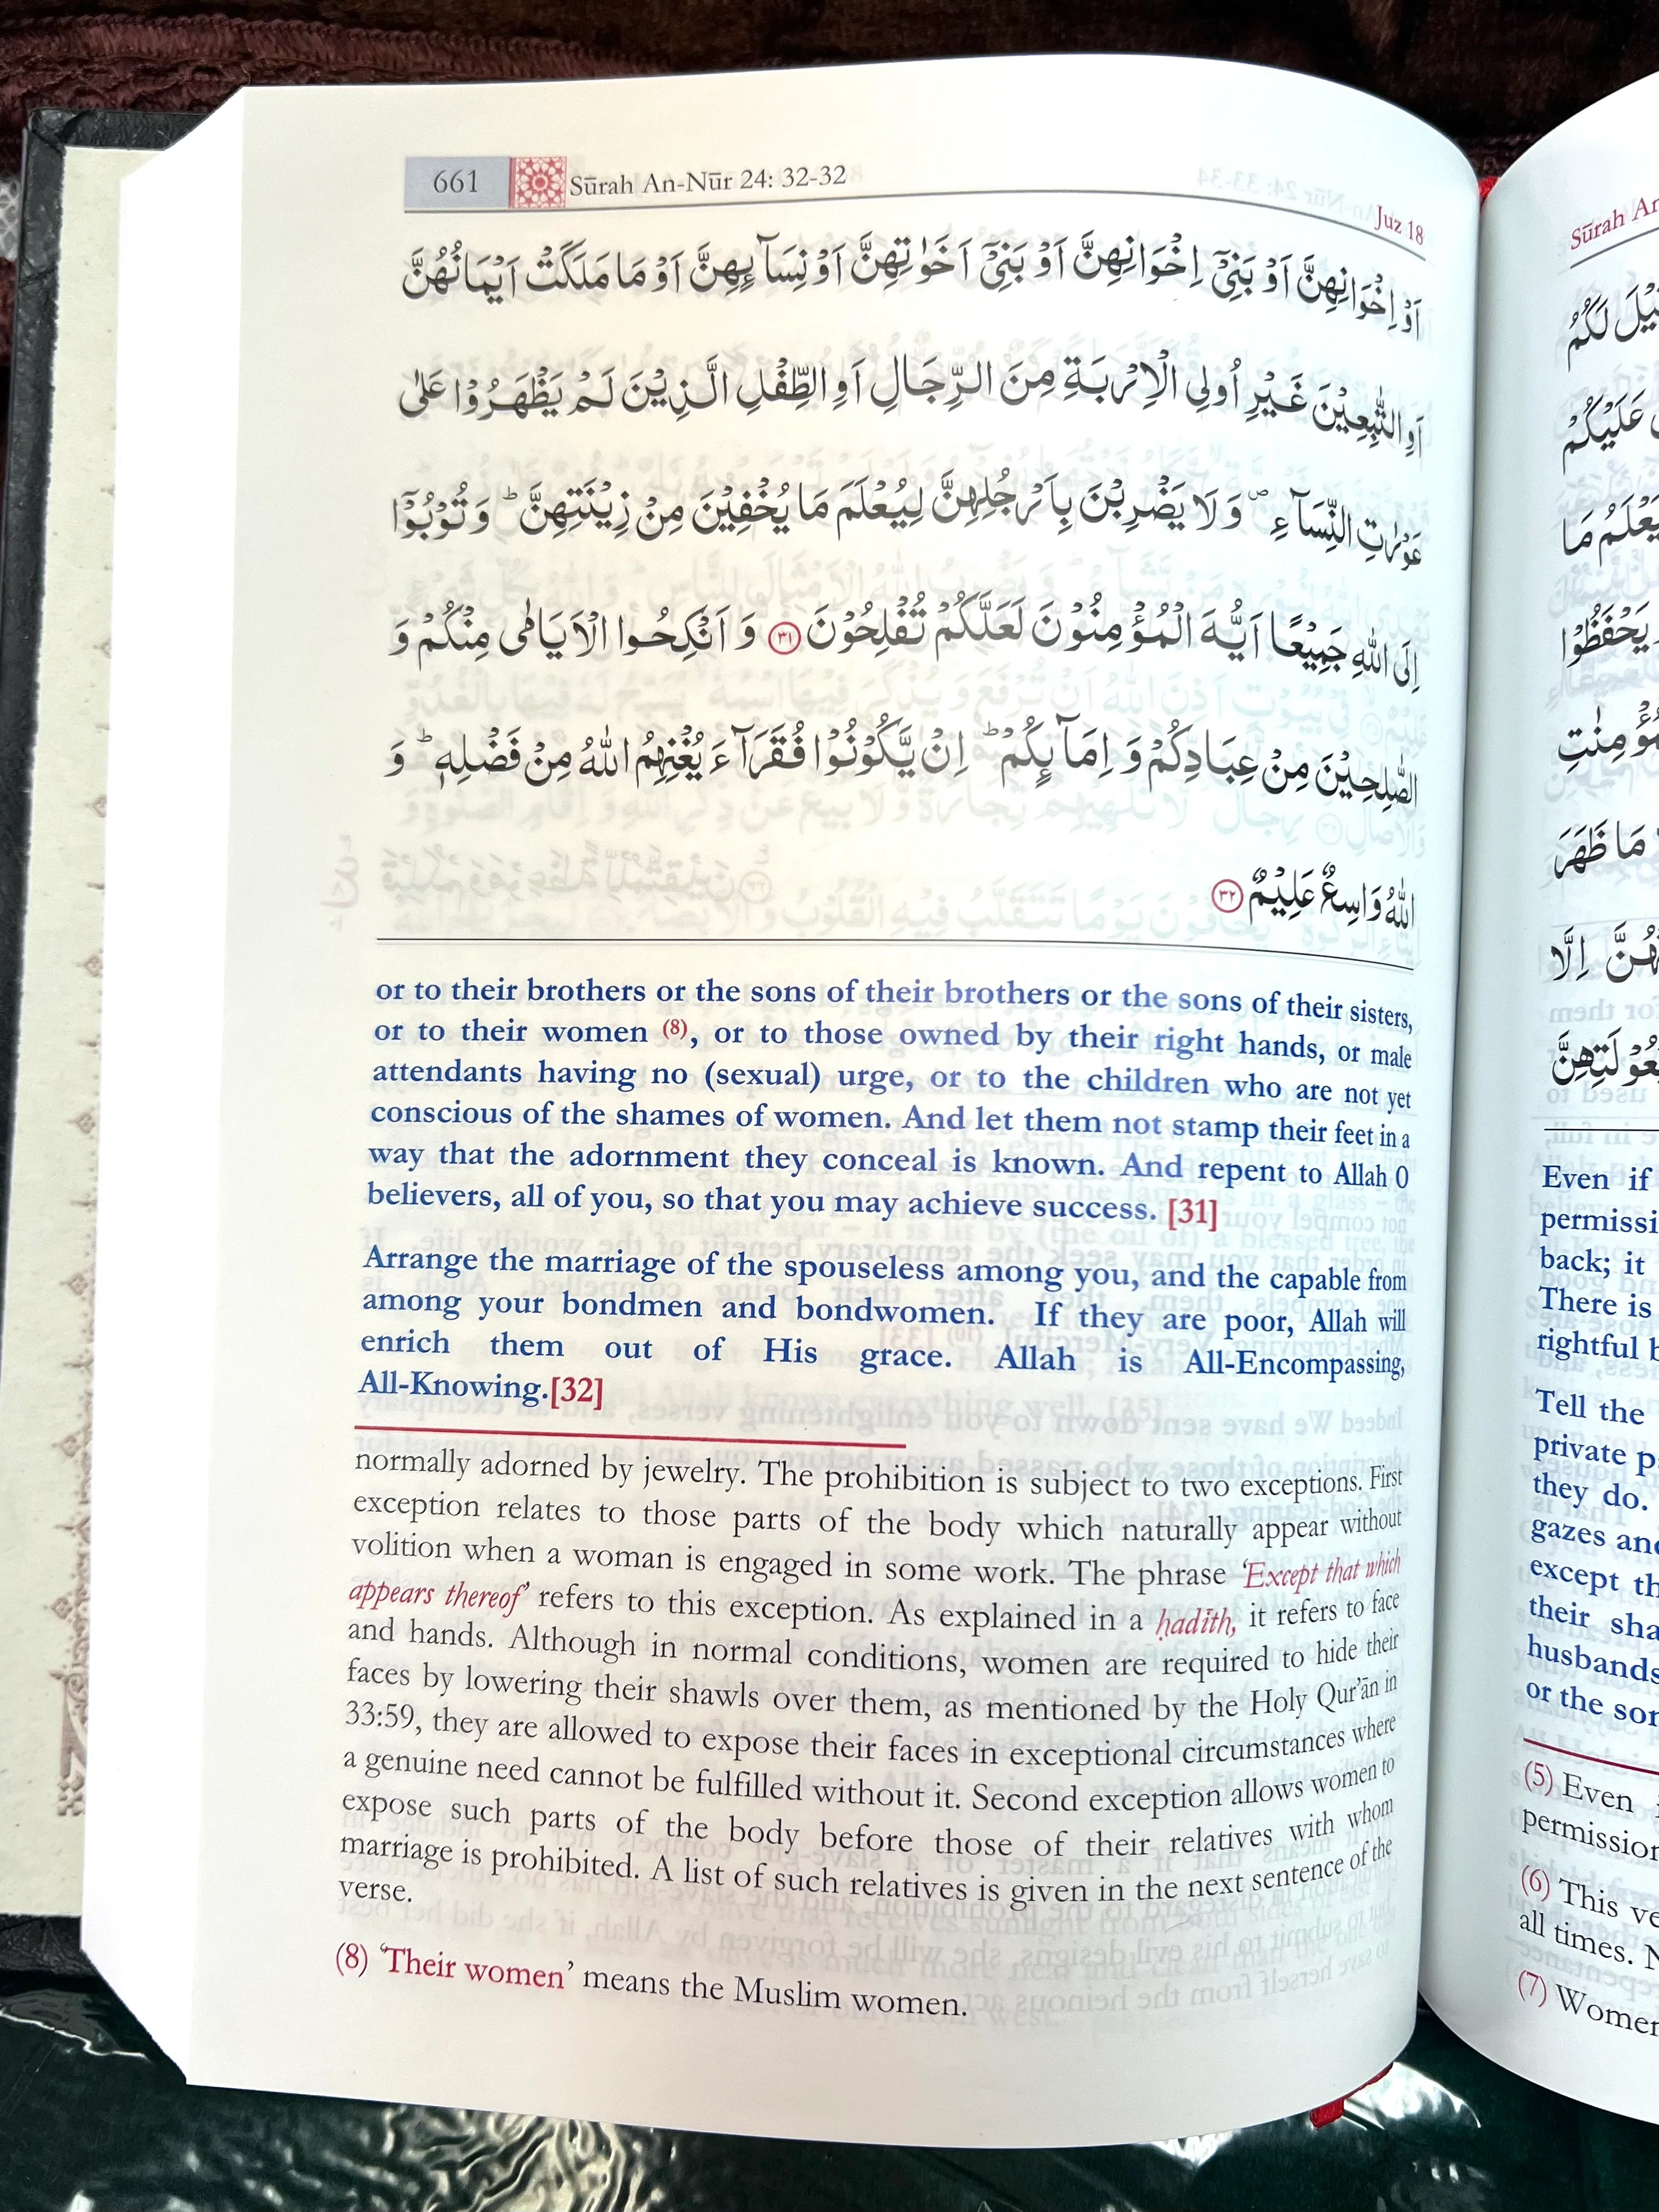 661 Sūrah An-Nūr 24: 32-32
Juz 18
اَوْ اِخْوَانِهِنَّ اَوْ بَنِیْۤ اِخْوَانِهِنَّ اَوْ بَنِیْۤ اَخَوٰتِهِنَّ اَوْ نِسَآئِهِنَّ اَوْ مَا مَلَكَتْ اَیْمَانُهُنَّ
اَوِ التّٰبِعِیْنَ غَیْرِ اُولِی الْاِرْبَةِ مِنَ الرِّجَالِ اَوِ الطِّفْلِ الَّذِیْنَ لَمْ یَظْهَرُوْا عَلٰی
عَوْرٰتِ النِّسَآءِ ۪ وَ لَا یَضْرِبْنَ بِاَرْجُلِهِنَّ لِیُعْلَمَ مَا یُخْفِیْنَ مِنْ زِیْنَتِهِنَّ ؕ وَ تُوْبُوْۤا
اِلَی اللّٰهِ جَمِیْعًا اَیُّهَ الْمُؤْمِنُوْنَ لَعَلَّكُمْ تُفْلِحُوْنَ ﴿۳۱﴾ وَ اَنْكِحُوا الْاَیَامٰی مِنْكُمْ وَ
الصّٰلِحِیْنَ مِنْ عِبَادِكُمْ وَ اِمَآئِكُمْ ؕ اِنْ یَّكُوْنُوْا فُقَرَآءَ یُغْنِهِمُ اللّٰهُ مِنْ فَضْلِهٖ ؕ وَ
اللّٰهُ وَاسِعٌ عَلِیْمٌ ﴿۳۲﴾
or to their brothers or the sons of their brothers or the sons of their sisters,
or to their women (8), or to those owned by their right hands, or male
attendants having no (sexual) urge, or to the children who are not yet
conscious of the shames of women. And let them not stamp their feet in a
way that the adornment they conceal is known. And repent to Allah O
believers, all of you, so that you may achieve success. [31]
Arrange the marriage of the spouseless among you, and the capable from
among your bondmen and bondwomen. If they are poor, Allah will
enrich them out of His grace. Allah is All-Encompassing,
All-Knowing.[32]
normally adorned by jewelry. The prohibition is subject to two exceptions. First
exception relates to those parts of the body which naturally appear without
volition when a woman is engaged in some work. The phrase ‘Except that which
appears thereof’ refers to this exception. As explained in a ḥadīth, it refers to face
and hands. Although in normal conditions, women are required to hide their
faces by lowering their shawls over them, as mentioned by the Holy Qur’ān in
33:59, they are allowed to expose their faces in exceptional circumstances where
a genuine need cannot be fulfilled without it. Second exception allows women to
expose such parts of the body before those of their relatives with whom
marriage is prohibited. A list of such relatives is given in the next sentence of the
verse.
(8) ‘Their women’ means the Muslim women.
Sūrah
لَكُمُ
عَلَیْكُمْ
مَا
یَحْفَظُوْا
مَا ظَهَرَ
اِلَّا
Even if
back; it
There is
rightful
Tell the
private
they do.
gazes
except
their
husbands
or the
(5) Even
permission
(6) This
all times.
(7)